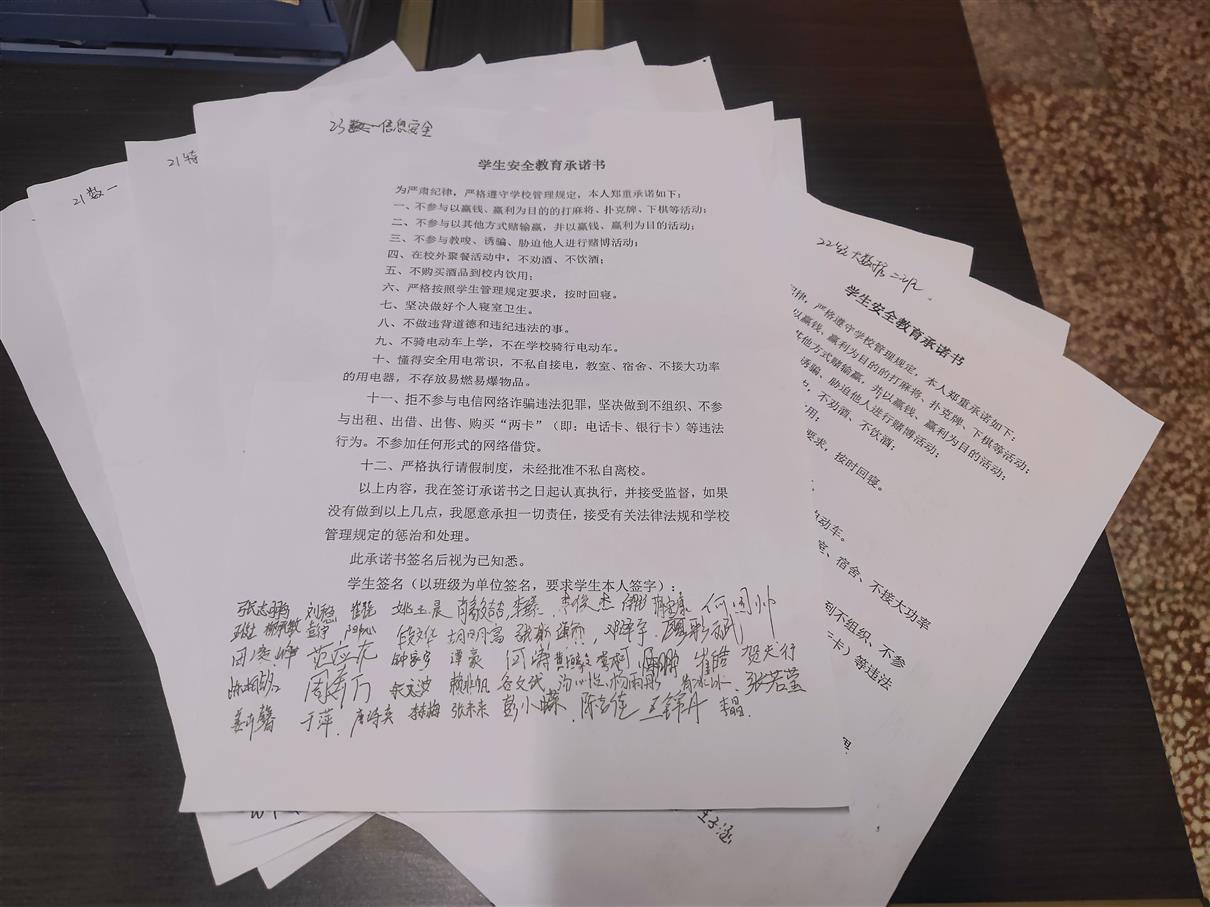 23数一信息安全
学生安全教育承诺书
为严肃纪律，严格遵守学校管理规定，本人郑重承诺如下：
一、不参与以赢钱、赢利为目的的打麻将、扑克牌、下棋等活动；
二、不参与以其他方式赌输赢，并以赢钱、赢利为目的活动；
三、不参与教唆、诱骗、胁迫他人进行赌博活动；
四、在校外聚餐活动中，不劝酒、不饮酒；
五、不购买酒品到校内饮用；
六、严格按照学生管理规定要求，按时回寝。
七、坚决做好个人寝室卫生。
八、不做违背道德和违纪违法的事。
九、不骑电动车上学，不在学校骑行电动车。
十、懂得安全用电常识，不私自接电，教室、宿舍、不接大功率
的用电器，不存放易燃易爆物品。
十一、拒不参与电信网络诈骗违法犯罪，坚决做到不组织、不参
与出租、出借、出售、购买“两卡”（即：电话卡、银行卡）等违法
行为。不参加任何形式的网络借贷。
十二、严格执行请假制度，未经批准不私自离校。
以上内容，我在签订承诺书之日起认真执行，并接受监督，如果
没有做到以上几点，我愿意承担一切责任，接受有关法律法规和学校
管理规定的惩治和处理。
此承诺书签名后视为已知悉。
学生签名（以班级为单位签名，要求学生本人签字）：
张志鹏 姚玉晨 李俊杰 何周帅
胡明富 邓泽宇
范应龙 钟家宇 谭豪 崔皓 贺天行
周寿万 杨雨彤 张若萱
姜沂馨 于萍 唐诗奕 李梅 张未来 彭小嵘 陈吉佳 王锦丹 李晶
21数一
21特
22级大数据二班
学生安全教育承诺书
纪律，严格遵守学校管理规定，本人郑重承诺如下：
以赢钱、赢利为目的的打麻将、扑克牌、下棋等活动；
其他方式赌输赢，并以赢钱、赢利为目的活动；
诱骗、胁迫他人进行赌博活动；
中，不劝酒、不饮酒；
用；
要求，按时回寝。
电动车。
宿舍、不接大功率
到不组织、不参
卡）等违法
王子涵